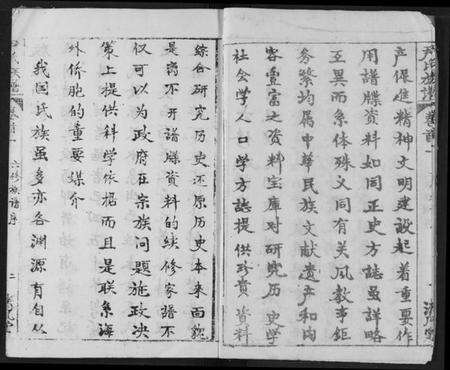 產促進精神文明建設起着重要作
用譜牒資料如同正史方誌雖詳略
互異而系体殊义同有关風教事鉅
务繁均属中華民族文献遺產和内
容豐富之資料宝庫对研究历史学
社会学人口学方誌提供珍貴資料
卷首
六修族譜序
二
綜合研究历史还原历史本来面貌
是离不开譜牒資料的续修家譜不
仅可以为政府在宗族问題施政决
策上提供科学依据而且是联系海
外侨胞的重要媒介
我国氏族虽多亦各渊源有自从